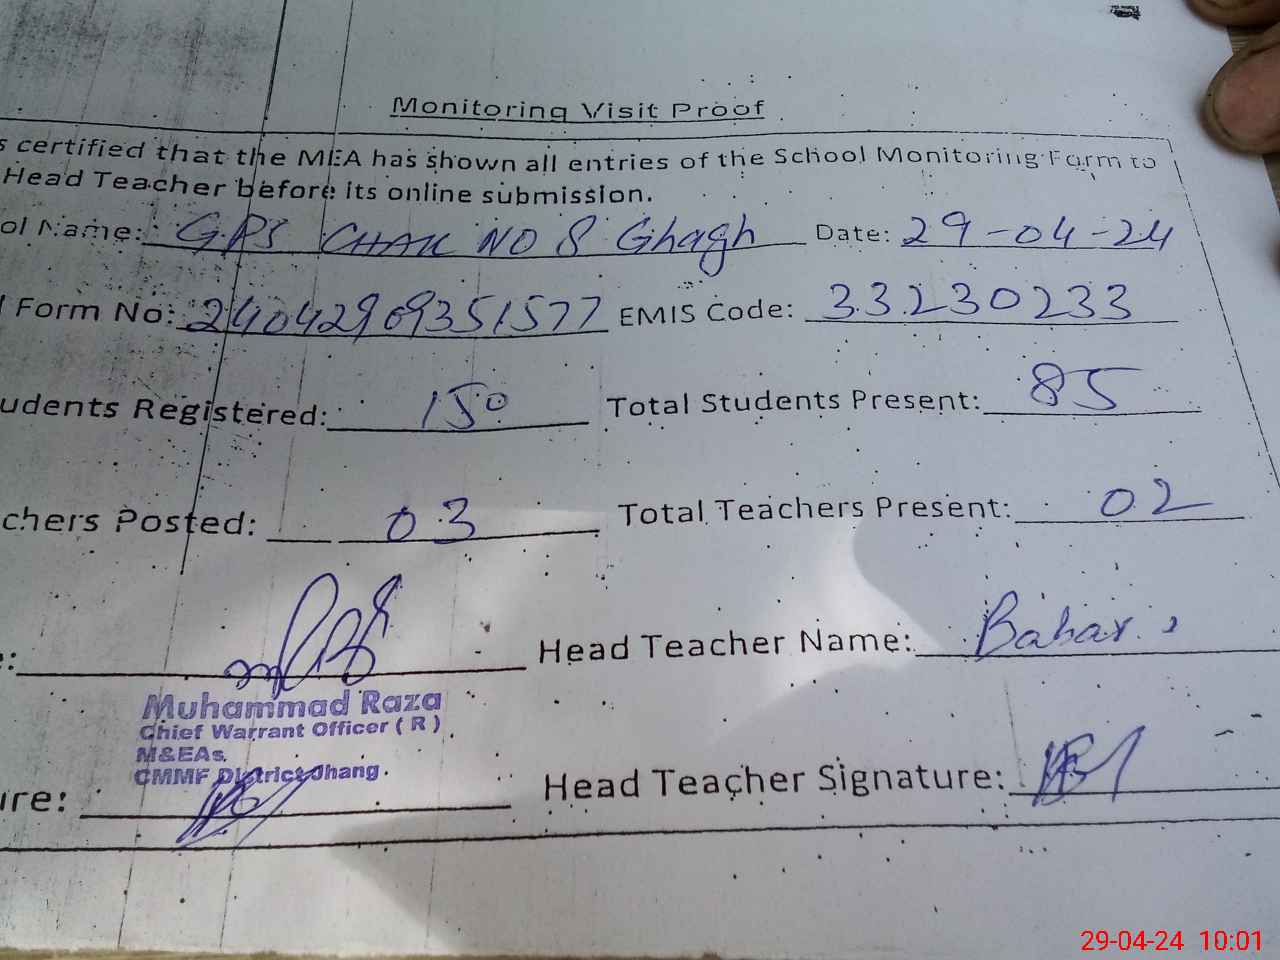 Monitoring Visit Proof
s certified that the MEA has shown all entries of the School Monitoring Form to
Head Teacher before its online submission.
ol Name: GPS CHAK NO 8 Ghagh Date: 29-04-24
Form No: 24042909351577 EMIS Code: 33230233
udents Registered: 150 Total Students Present: 85
chers Posted: 03 Total Teachers Present: 02
e: Head Teacher Name: Bahar
Muhammad Raza
Chief Warrant Officer ( R )
M&EAs
CMMF District Jhang.
ure: Head Teacher Signature:
29-04-24 10:01